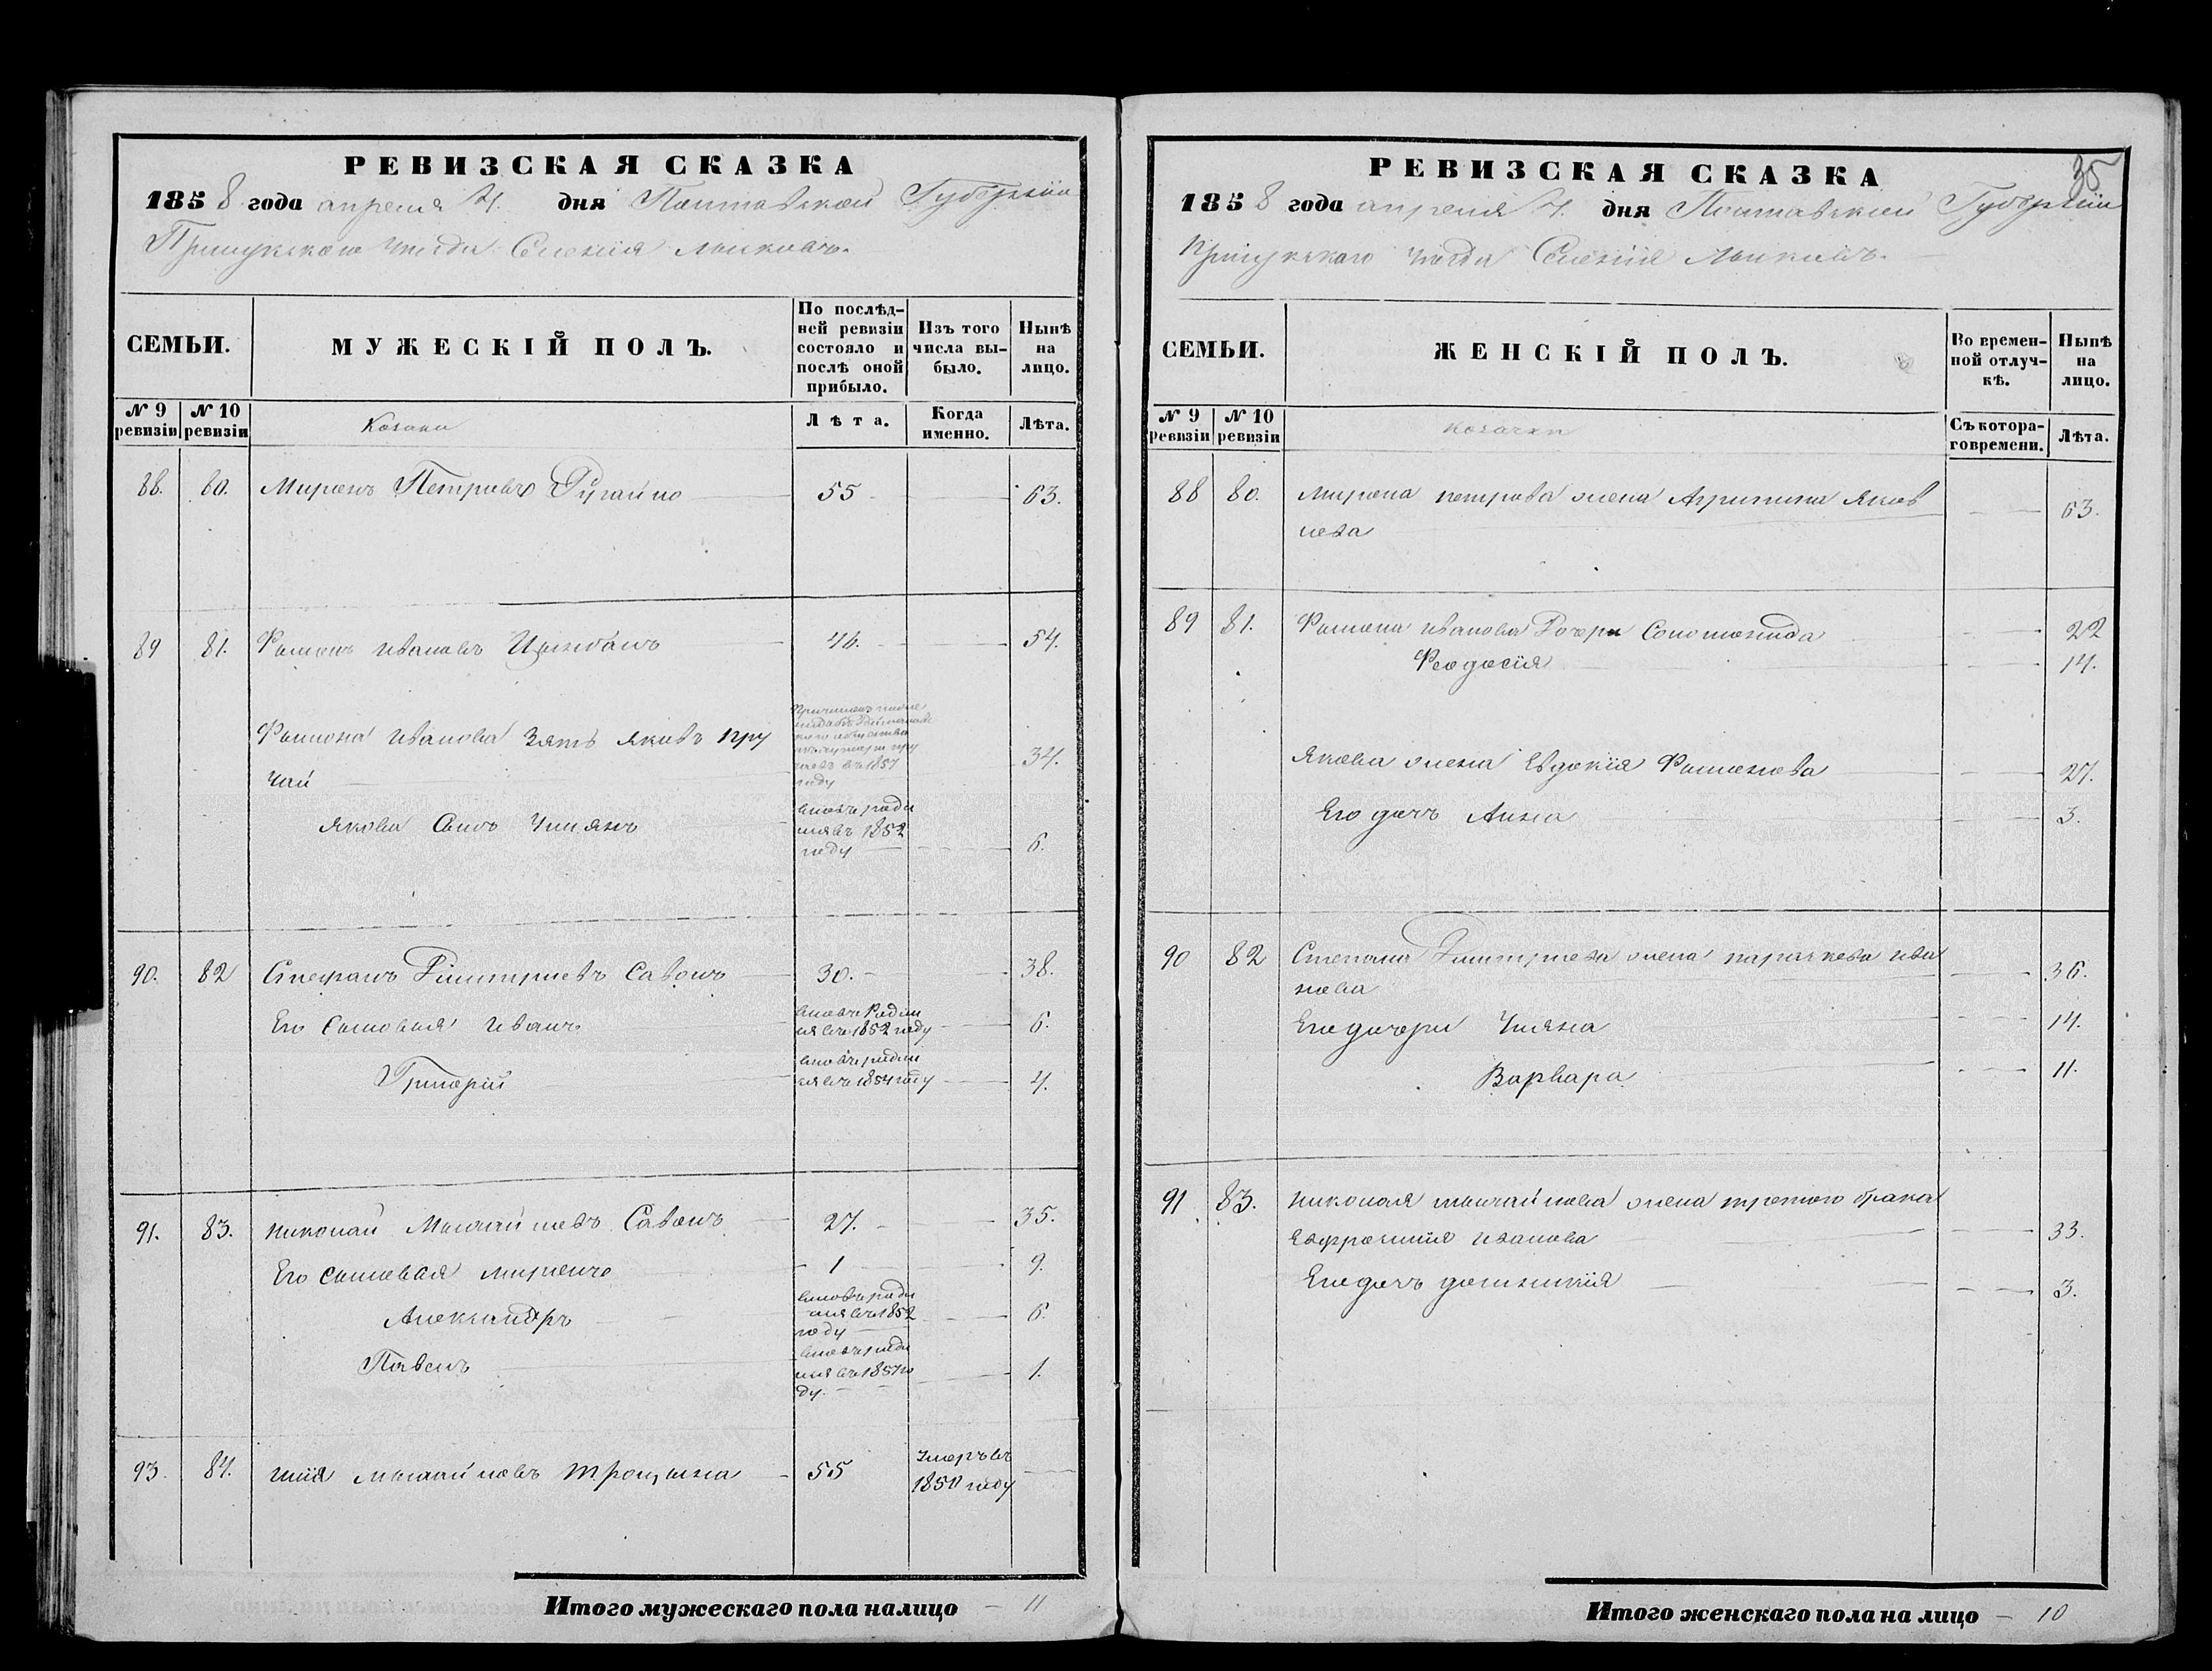 РЕВИЗСКАЯ СКАЗКА
1858 года апреля 4. дня Полтавской Губерніи
Прилукского уезда Селенія
СЕМЬИ.
МУЖЕСКІЙ ПОЛЪ.
По послѣд-
ней ревизіи
состояло и
послѣ оной
прибыло.
Изъ того
числа вы-
было.
Нынѣ
на
лицо.
№ 9
ревизіи
№ 10
ревизіи
Козаки
Лѣта.
Когда
именно.
Лѣта.
88. 80. Миронъ Петровъ 55 63.
89 81. Филипъ Ивановъ Цымбалъ 46. 54.
Ивановa Зять Яковъ Пру
чай
въ 1857
году
34.
Якова Сынъ Ульянъ
вновь роди
лся въ 1852
году
6.
90. 82 Стефанъ Димитриевъ Савонъ 30. 38.
Его Сыновья Иванъ
вновь Родил
ся въ 1852 году
6.
Григорій
вновь родил
ся въ 1854 году
4.
91. 83. Николай Михайловъ Савонъ 27. 35.
Его сыновья Миронъ 1 9.
Александръ
вновь роди
лся въ 1852
году
6.
Павелъ
вновь роди
лся въ 1857 го
ду.
1.
93. 84. Илія Михайловъ Троцына 55
Умеръ въ
1850 году
Итого мужескаго пола налицо 11
35
РЕВИЗСКАЯ СКАЗКА
1858 года апреля 4. дня Полтавской Губерніи
Прилукского уезда Селенія
СЕМЬИ.
ЖЕНСКІЙ ПОЛЪ.
Во времен-
ной отлуч-
кѣ.
Нынѣ
на
лицо.
№ 9
ревизіи
№ 10
ревизіи
козачки
Съ котора-
го времени.
Лѣта.
88 80. Мирона Петрова жена Агрипина Яков
лева
63.
89 81. Ивановa Дочери Соломонида 22
Феодосія 14.
Якова жена Евдокія 27.
Его дочь Анна 3.
90 82 Степана Димитриева жена Параскева Ива
нова
36.
Его дочери Ульяна 14.
Варвара 11.
91 83. Николая Михайлова жена третого брака
Евфросинія Иванова 33.
Его дочь Домникія 3.
Итого женскаго пола на лицо 10